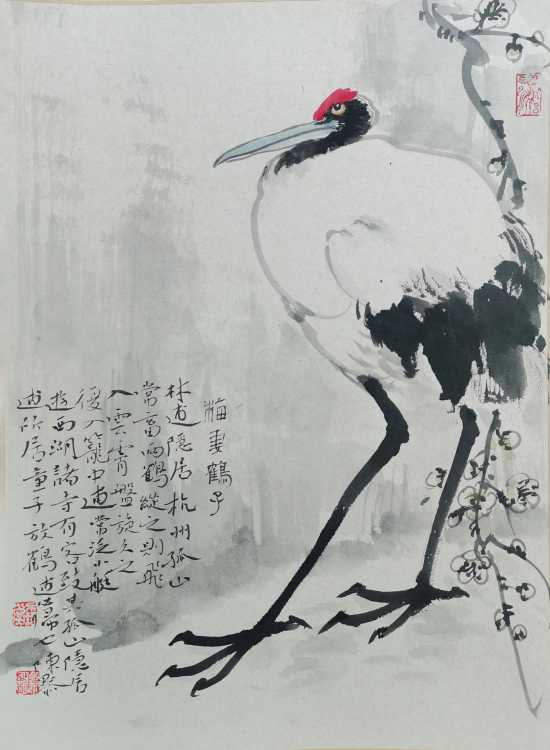 梅妻鶴子
林逋隱居杭州孤山
常畜兩鶴縱之則飛
入雲霄盤旋久之
復入籠中逋常泛小艇
遊西湖諸寺有客致其孤山隱居
逋所居童子放鶴逋